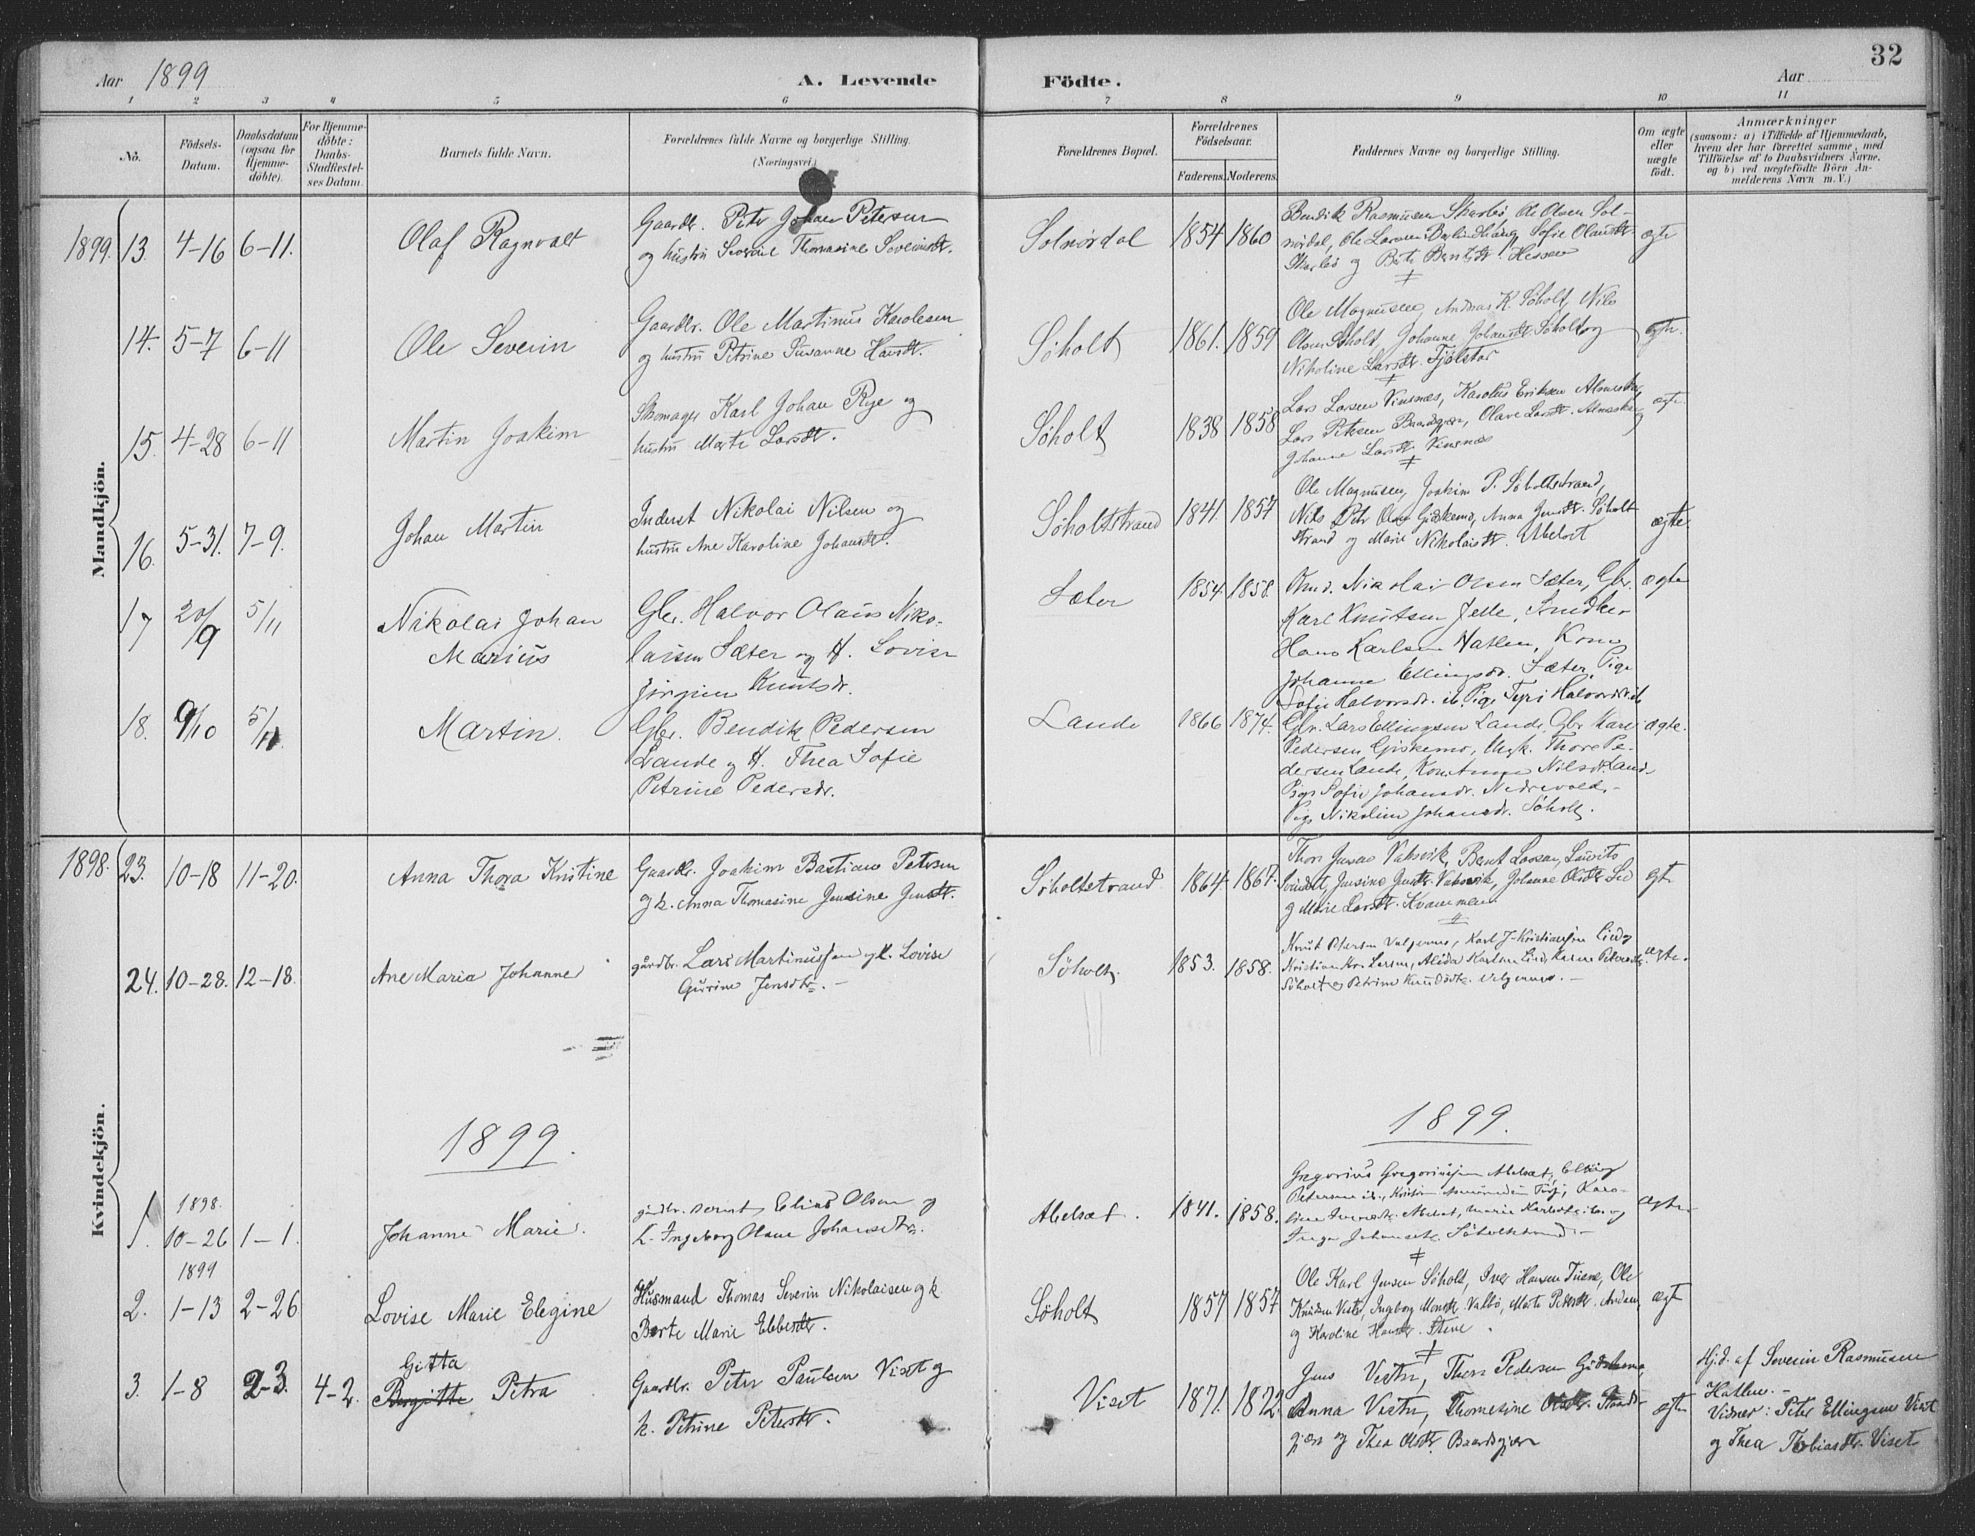 32
Aar 1899 A. Levende Födte. Aar
1 2 3 4 5 6 7 8 9 10 11
No.
Födsels-
Datum.
Daabsdatum
(ogsaa for
Hjemme-
döbte).
For Hjemme-
döbte:
Daabs-
Stadfæstel-
ses Datum.
Barnets fulde Navn.
Forældrenes fulde Navne og borgerlige Stilling.
(Næringsvei.)
Forældrenes Bopæl.
Forældrenes
Födselsaar.
Faderens. Moderens.
Faddernes Navne og borgerlige Stilling.
Om ægte
eller
uægte
födt.
Anmærkninger
(saasom: a) i Tilfælde af Hjemmedaab,
hvem der har forrettet samme, med
Tilföielse af to Daabsvidners Navne,
og b) ved uægtefödte Börn An-
melderens Navn m. V.)
Mandkjön.
1899. 13. 4-16 6-11. Olaf Ragnvalt
Gaardbr. Petr Johan Petersen
og hustru Severine Thomasine Soverinsdtr.
Solnördal 1854 1860
Bendik Rasmusen Skarbö, Ole Olsen Sol-
nördal, Ole Larsen Sofie Olausdtr
Skarbö og Berte Berntsdtr. Hessen
ægte
14. 5-7 6-11 Ole Severin
Gaardbr. Ole Martinus Karolesen
og hustru Petrine Susanne Hansdtr.
Söholt 1861. 1859
Ole Magnusen, Andreas K. Söholt, Nils
Olsen Söholt, Johanne Johansdtr. Söholt og
Nikoline Larsdtr. Fjelstar
ægte.
15. 4-28 6-11 Martin Joakim
Skomager Karl Johan Rye og
hustru Marte Larsdtr.
Söholt 1838 1858
Lars Larsen Vinsnæs, Karolus Eriksen
Lars Petersen Olave Larsdtr.
Johanne Larsdtr. Vinsnæs
ægte
16. 5-31. 7-9. Johan Martin
Inderst Nikolai Nilsen og
hustru Ane Karoline Johansdtr.
Söholtstrand 1841. 1857
Ole Magnusen, Joakim P. Söholtstrand,
Nils Petr Olsen Giskemo, Anna Jensdtr. Söholt
strand og Marie Nikolaisdtr.
ægte
17 20/9 5/11 Nikolai Johan
Marius
Gbr. Halvor Olaus Niko-
laisen Sæter og H. Lovise
Jörgine Knutsdr.
Sæter 1854 1858.
Nikolai Olsen Sæter, Gbr.
Karl Knutsen Jelle, Snedker
Hans Karlsen Hatlen, Kone
Johanne Ellingsdr. Sæter, Pige
Sofie Halvorsdr. ib. Pige Tyri Halvorsdr. ib
ægte
18. 9/10 5/11. Martin.
Gbr. Bendik Pedersen
Lande og H. Thea Sofie
Petrine Pedersdr.
Lande 1866 1874.
Gbr. Lars Ellingsen Lande, Gbr. Karl
Pedersen Giskemo, Ungk. Thore Pe-
dersen Lande, Kone Nilsdr. Lande
Pige Sofie Johansdr. Nedrevold,
Pige Nikoline Johansdr. Söholt.
ægte.
Kvindekjön.
1898. 23. 10-18 11-20. Anna Thora Kristine
Gaardbr. Joakim Bastian Petersen
og h. Anna Thomasine Jensine Jensdtr.
Söholtstrand 1864. 1867.
Thore Jensen Vatsvik, Bernt Larsen, Laurits
Jensine Jensdtr. Vatsvik, Johanne Olsdtr. Lid
og Marie Larsdtr. Kvammen
ægte
24. 10-28. 12-18. Ane Maria Johanne
gårdbr. Lars Martinussen og h. Lovise
Gurine Jensdtr. -
Söholt. 1853. 1858.
Knut Petersen Karl J. Kristiansen Lied,
Kristian Kr. Larsen, Alida Karlsen Lied, Karen
Söholt og Petrine Knudsdtr. -
ægte.
1899. 1899.
1. 1898. 10-26 1-1. Johanne Marie.
gårdbr. Bernt Elias Olsen og
h. Ingeborg Oline Johansdtr.
Abelsæt. 1841. 1858.
Gregorius Gregoriussen Abelsæt, Elling
Petersen ib., Karo-
line Abelset, Marie Karlsdtr. ib. og
Inga Johansdtr. Söholtstrand. -
ægte.
2. 1899 1-13 2-26 Lovise Marie Elegine
Husmand Thomas Severin Nikolaisen og h.
Berte Marie Ebbesdtr.
Söholt 1857 1857
Ole Karl Jensen Söholt, Iver Hansen Tuene, Ole
Knudsen Ingborg Monsdtr. Valbö, Marte Petersdtr.
og Karoline Hansdtr. Stene.
ægte
3. 1-8 2-3. 4-2. Gitta
Birgitte Petra
Gaardbr. Peter Paulsen Viset og
h. Petrine Petersdtr.
Viset 1871. 1872
Jens Vestre, Thore Pedersen Gidskemo,
Anna Vestre, Thomasine Olsdtr.
og Thea Olsdtr. Baardsgjæren
ægte
Hj.d. af Severin Rasmusen
Hatlen. -
Vidner: Peter Ellingsen Viset
og Thea Tobiasdtr. Viset